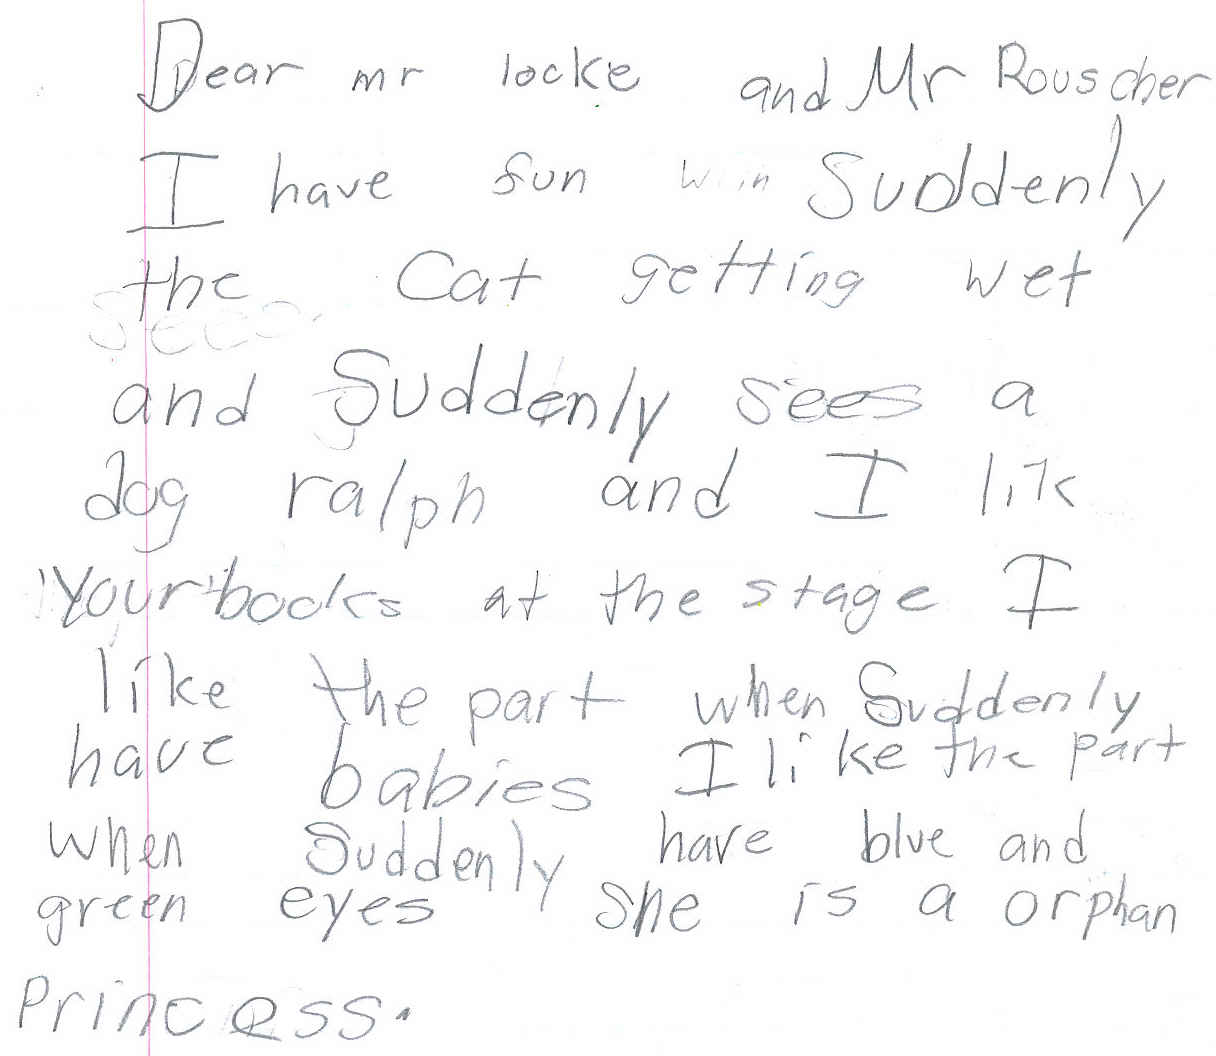 Dear mr locke and Mr Rouscher
I have fun win Suddenly
the Cat getting wet
and Suddenly sees a
dog ralph and I lik
Your books at the stage I
like the part when Suddenly
have babies I like the part
when Suddenly have blue and
green eyes She is a orphan
Princess.